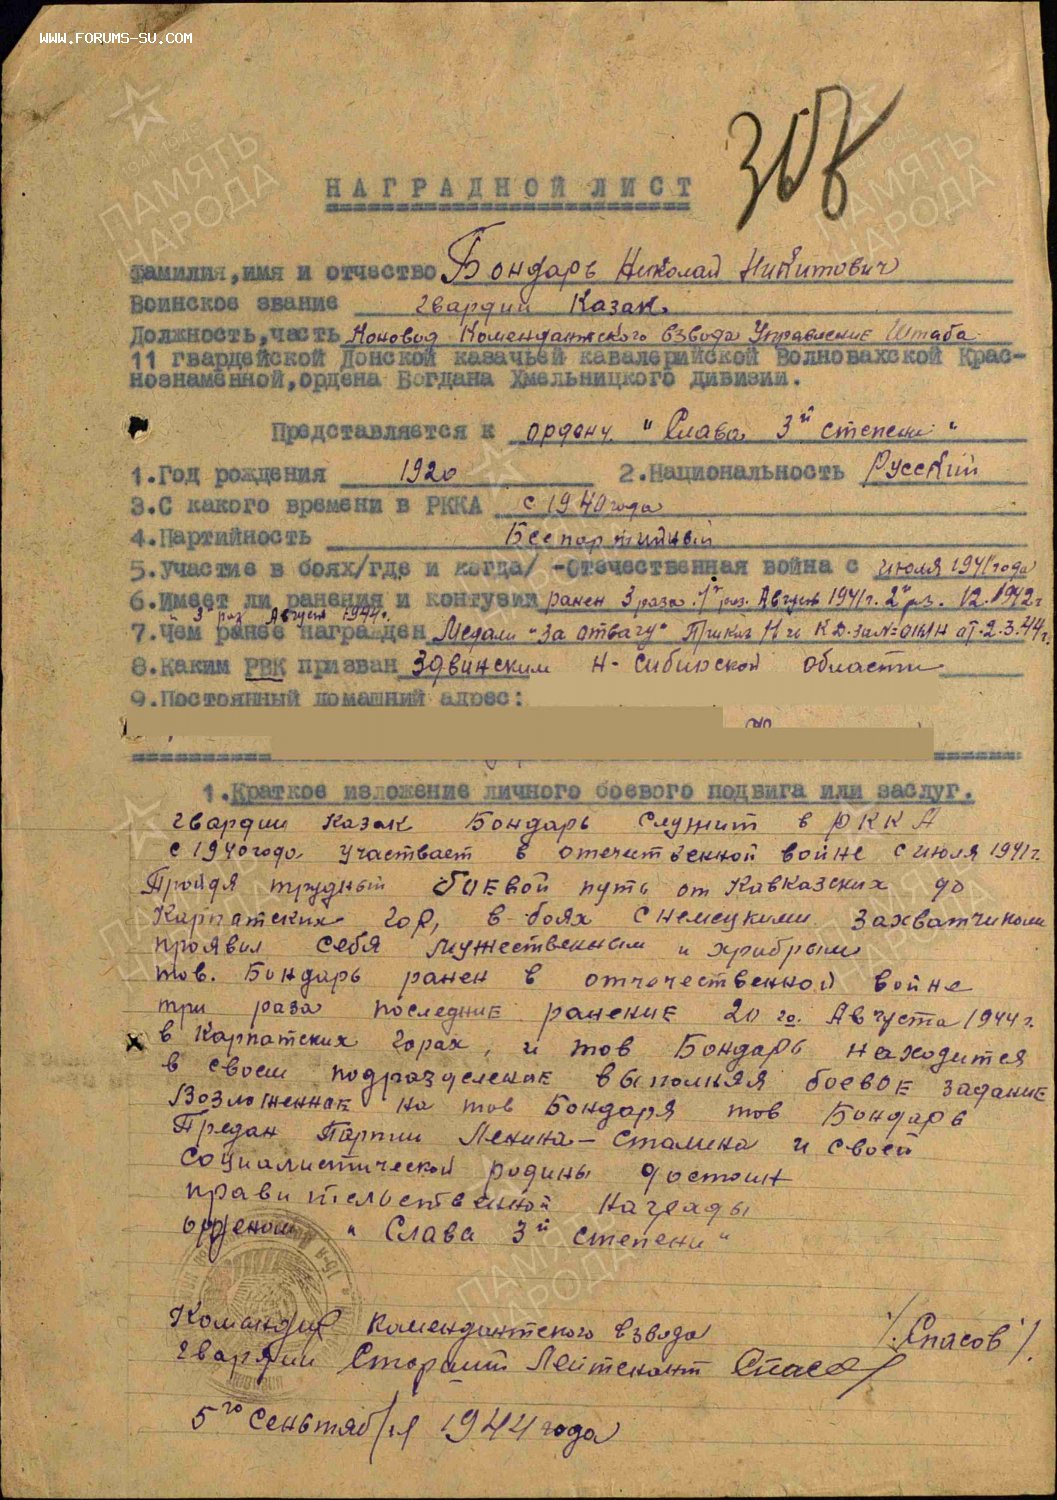 WWW.FORUMS-SU.COM
НАГРАДНОЙ ЛИСТ
Фамилия, имя и отчество Бондарь Николай Никитович
Воинское звание гвардии Казак.
Должность, часть Коновод Комендантского взвода Управление Штаба
11 гвардейской Донской казачьей кавалерийской Волновахской Крас-
нознаменной, ордена Богдана Хмельницкого дивизии.
Представляется к ордену "Слава 3й степени"
1. Год рождения 1920 2. Национальность Русский
3. С какого времени в РККА с 1940 года
4. Партийность Беспартийный
5. Участие в боях /где и когда/ - Отечественная война с июля 1941 года
6. Имеет ли ранения и контузии ранен 3 раза. 1й раз. Август 1941 г. 2й рз. 12.1942 г
3й раз Август 1944 г.
7. Чем ранее награжден Медаль "За отвагу" Приказ 11 гв К.Д. за № от 2.3.44 г.
8. Каким РВК призван Здвинским Н-Сибирской области
9. Постоянный домашний адрес:
1. Краткое изложение личного боевого подвига или заслуг.
гвардии Казак Бондарь служит в РККА
с 1940 года участвает в отечественной войне с июля 1941 г.
Пройдя трудный боевой путь от Кавказских до
Карпатских гор, в боях с немецкими захватчиками
проявил себя мужественным и храбрым
тов. Бондарь ранен в отечественной войне
три раза последние ранение 20 го. Августа 1944 г.
в Карпатских горах, и тов Бондарь находится
в своем подразделение выполняя боевое задание
Возложенное на тов Бондаря тов Бондарь
Предан Партии Ленина - Сталина и своей
социалистической родины достоин
правительственной награды
орденом "Слава 3й степени"
Командир комендантского взвода /Спасов/.
гвардии Старший Лейтенант Спасов
5го Сеньтября 1944 года
ПАМЯТЬ
НАРОДА